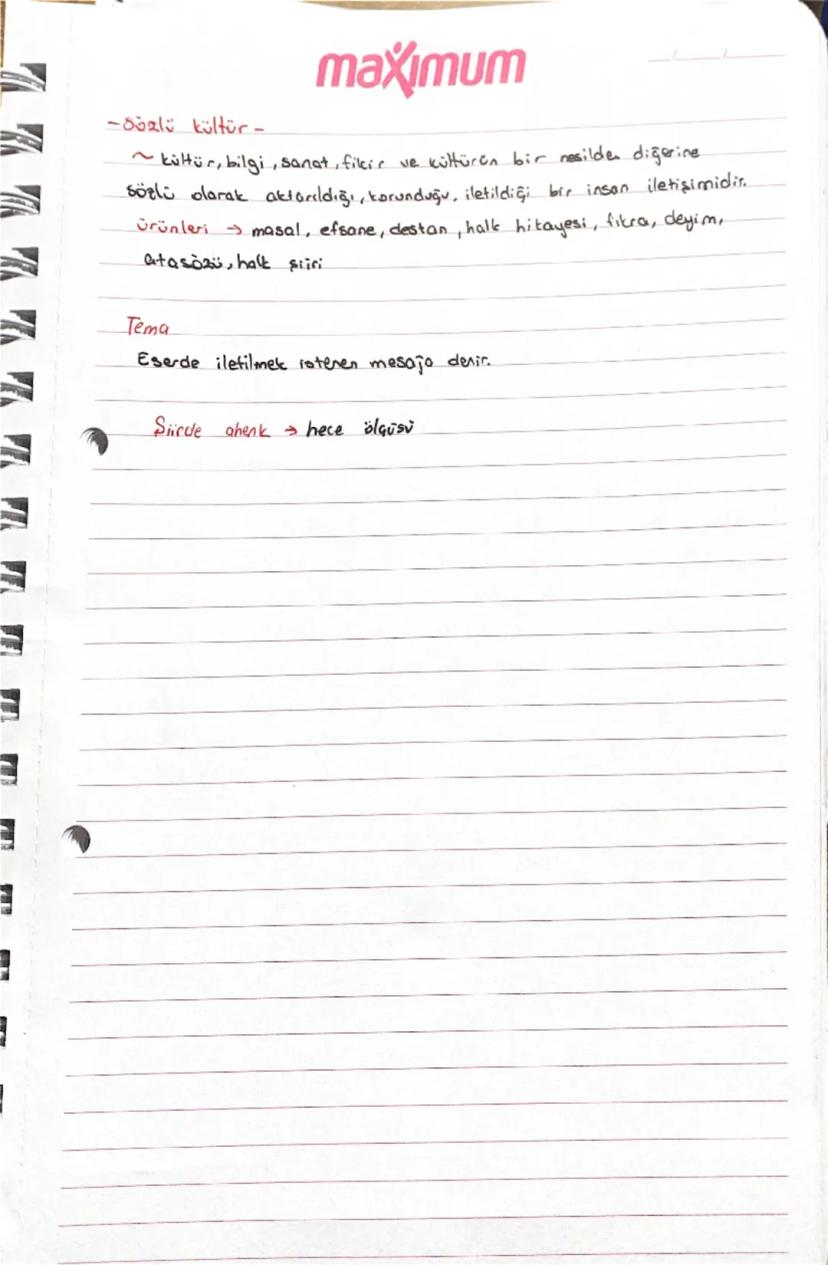 maximum
-Sözlü kültür-
~ kültür, bilgi, sanat, fikir ve kültürün bir nesilden diğerine
sözlü olarak aktarıldığı, korunduğu, iletildiği bir insan iletişimidir.
ürünleri → masal, efsane, destan, halk hikayesi, fıkra, deyim,
atasözü, halk şiiri
Tema
Eserde iletilmek istenen mesaja denir.
Şiirde ahenk → hece ölçüsü